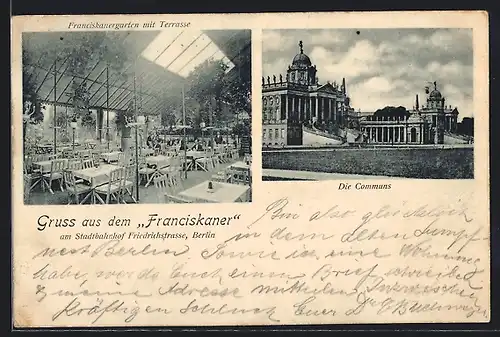 Franciskanergarten mit Terrasse
Die Communs
Gruss aus dem „Franciskaner“
am Stadtbahnhof Friedrichstrasse, Berlin
Bin also glücklich
in dem alten Sumpf
nest Berlin Sowie ich eine Wohnung
habe, werde Euch einen Brief schreiben
& meine Adresse mitteilen Inzwischen
kräftigen Schluck Euer Dr